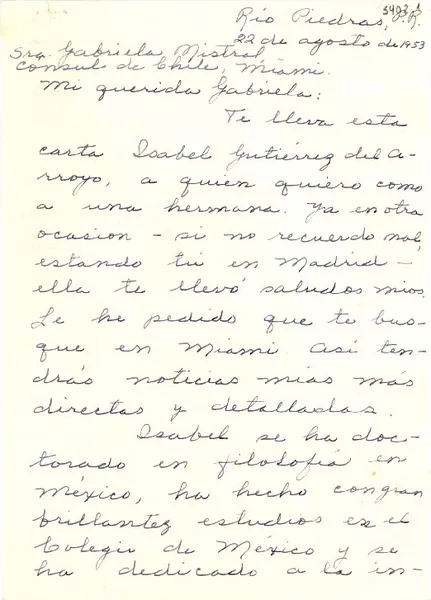 Río Piedras, P.R.
22 de agosto de 1953
Sra. Gabriela Mistral
Consul de Chile, Miami.
Mi querida Gabriela:
Te lleva esta
carta Isabel Gutiérrez del A-
rroyo, a quien quiero como
a una hermana. Ya en otra
ocasion - si no recuerdo mal,
estando tú en Madrid -
ella te llevó saludos mios.
Le he pedido que te bus-
que en Miami. Así ten-
drás noticias mías más
directas y detalladas.
Isabel se ha doc-
torado en filosofía en
México, ha hecho con gran
brillantez estudios en el
Colegio de México y se
ha dedicado a la in-